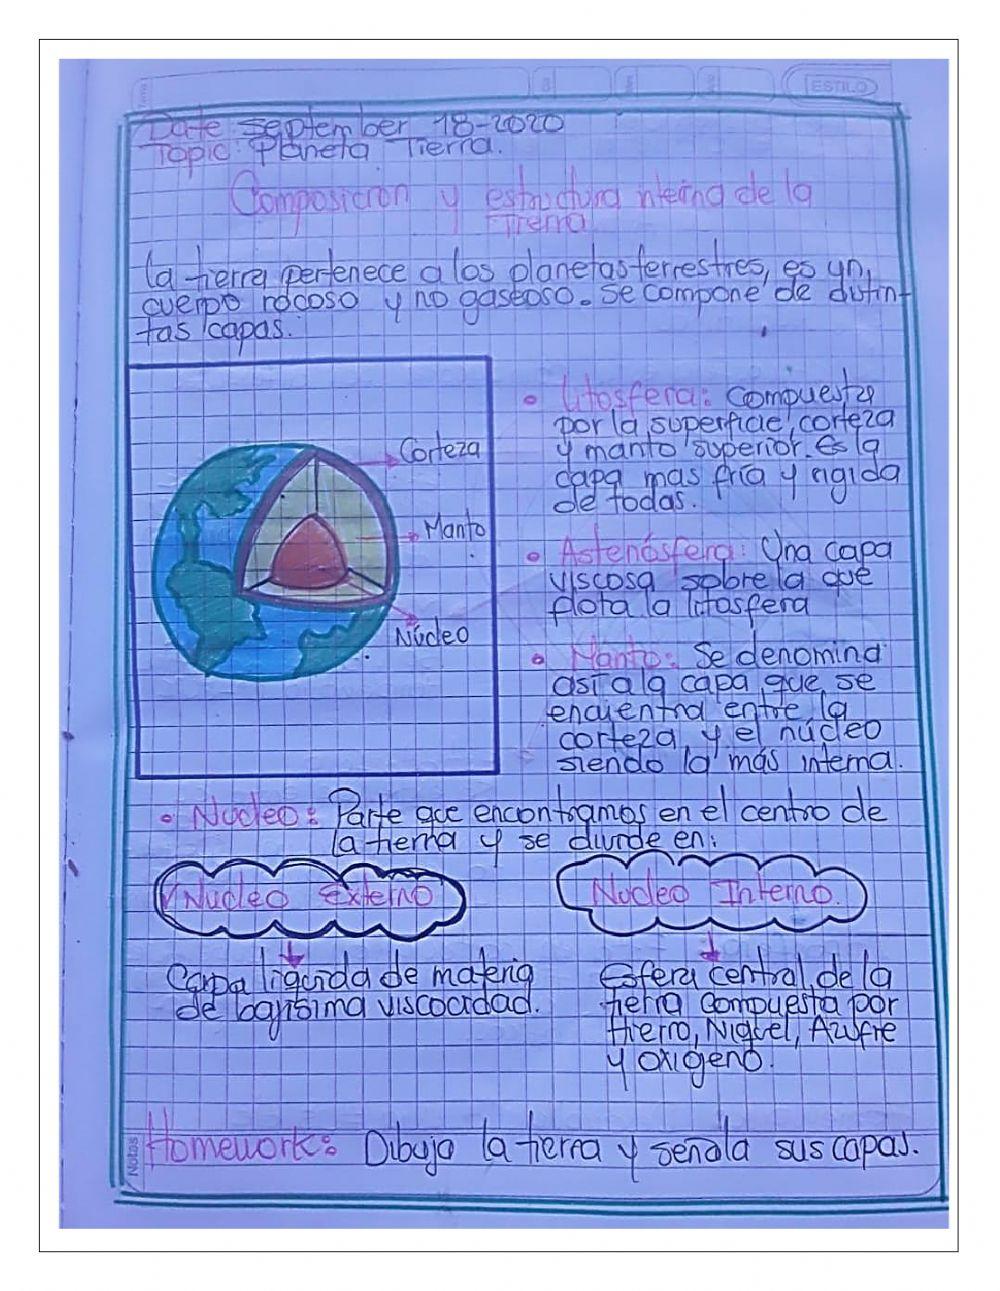 ESTILO
Date: September 18-2020
Topic: Planeta Tierra.
Composición y estructura interna de la
Tierra
la tierra pertenece a los planetas terrestres, es un
cuerpo rocoso y no gaseoso. Se compone de distin-
tas capas.
Corteza
Manto
Núcleo
• Litosfera: Compuesta
por la superficie, corteza
y manto superior. Es la
capa mas fría y rigida
de todas.
• Astenósfera: Una capa
viscosa sobre la que
flota la litosfera
• Manto: Se denomina
así a la capa que se
encuentra entre la
corteza y el núcleo
siendo la más interna.
• Nucleo: Parte que encontramos en el centro de
la tierra y se divide en:
Nucleo Externo
Nucleo Interno.
Capa liquida de materia
de bajísima viscocidad.
Esfera central de la
tierra compuesta por
hierro, Niquel, Azufre
y oxigeno.
Notas
Homework: Dibuja la tierra y señala sus capas.